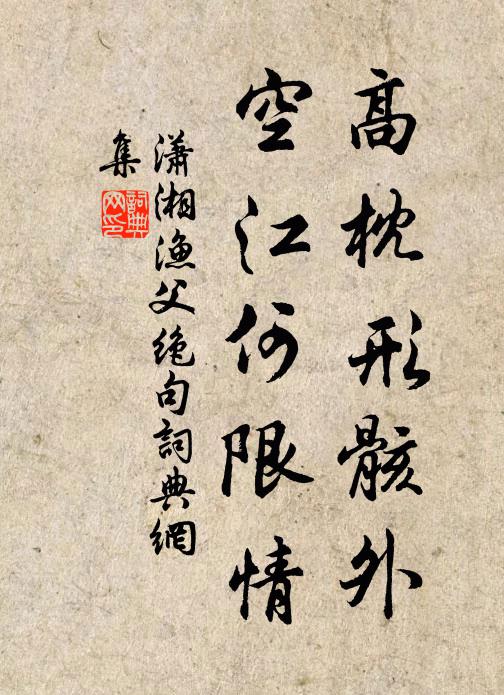 高枕形骸外
空江何限情
瀟湘漁父絶句詞典網
集
詞典
网印